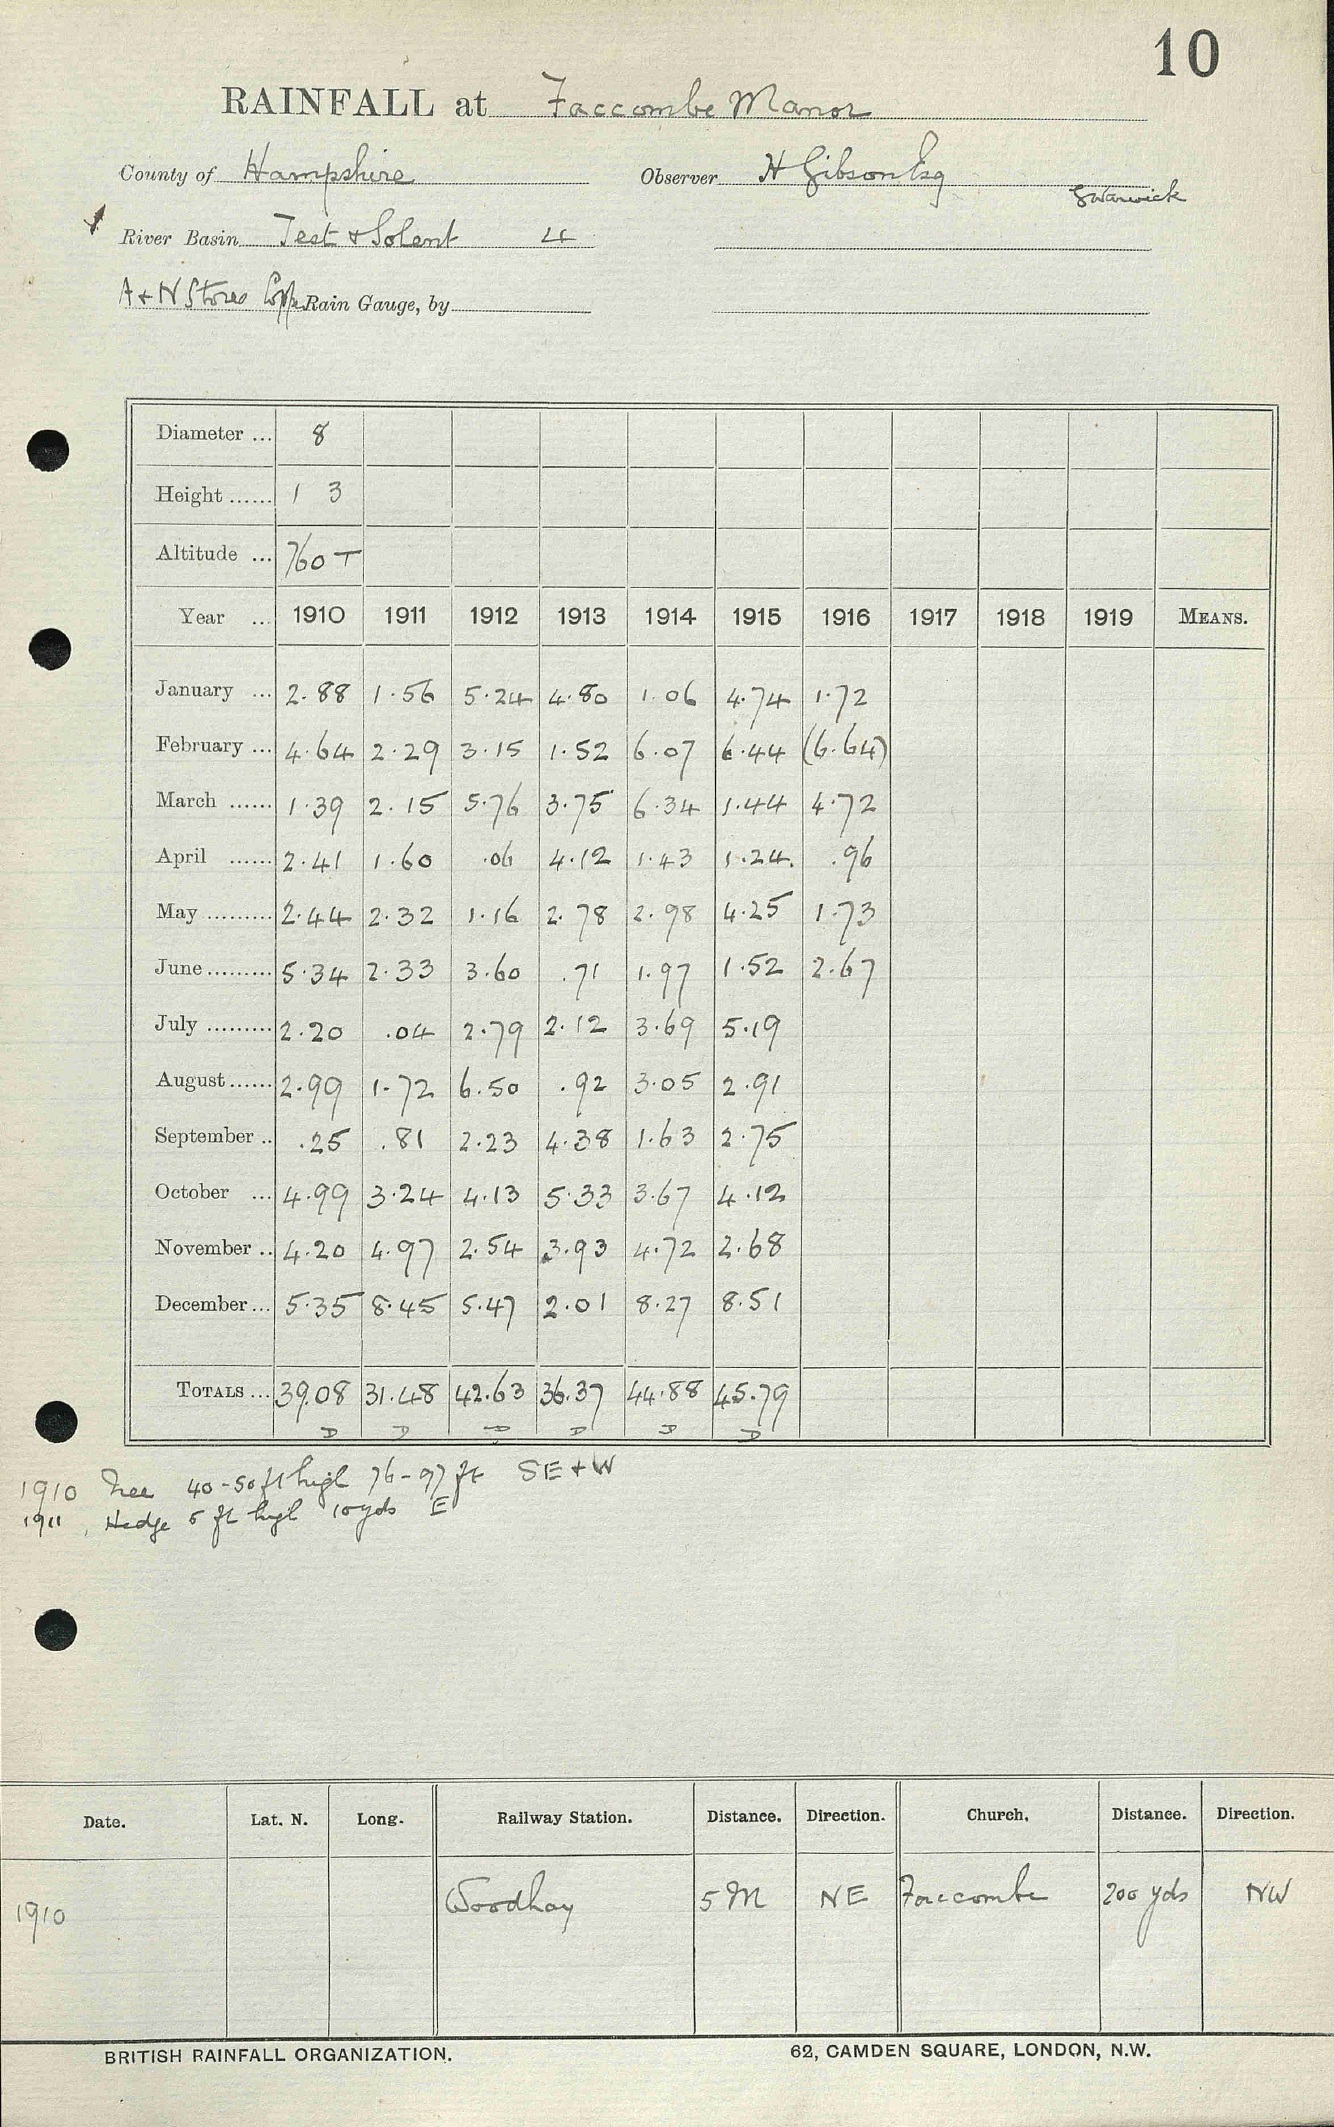 10
RAINFALL at Faccombe Manor
County of Hampshire Observer H Gibson Esq
G Warwick
River Basin Test & Solent 4
A & N Stores Rain Gauge, by
Diameter ... 8
Height ...... 1 3
Altitude ... 760 T
Year ... 1910 1911 1912 1913 1914 1915 1916 1917 1918 1919 MEANS.
January ... 2.88 1.56 5.24 4.80 1.06 4.74 1.72
February ... 4.64 2.29 3.15 1.52 6.07 6.44 (6.64)
March ...... 1.39 2.15 5.76 3.75 6.34 1.44 4.72
April ...... 2.41 1.60 .06 4.12 1.43 1.24. .96
May ......... 2.44 2.32 1.16 2.78 2.98 4.25 1.73
June ......... 5.34 2.33 3.60 .71 1.97 1.52 2.67
July ......... 2.20 .04 2.79 2.12 3.69 5.19
August ...... 2.99 1.72 6.50 .92 3.05 2.91
September .. .25 .81 2.23 4.38 1.63 2.75
October ... 4.99 3.24 4.13 5.33 3.67 4.12
November .. 4.20 4.97 2.54 3.93 4.72 2.68
December ... 5.35 8.45 5.47 2.01 8.27 8.51
TOTALS ... 39.08 31.48 42.63 36.37 44.88 45.79
D D D D D D
1910 Tree 40-50 ft high 76-97 ft SE & W
1911 Hedge 5 ft high 10 yds E
Date. Lat. N. Long. Railway Station. Distance. Direction. Church. Distance. Direction.
1910 Woodhay 5 M NE Faccombe 200 yds NW
BRITISH RAINFALL ORGANIZATION. 62, CAMDEN SQUARE, LONDON, N.W.